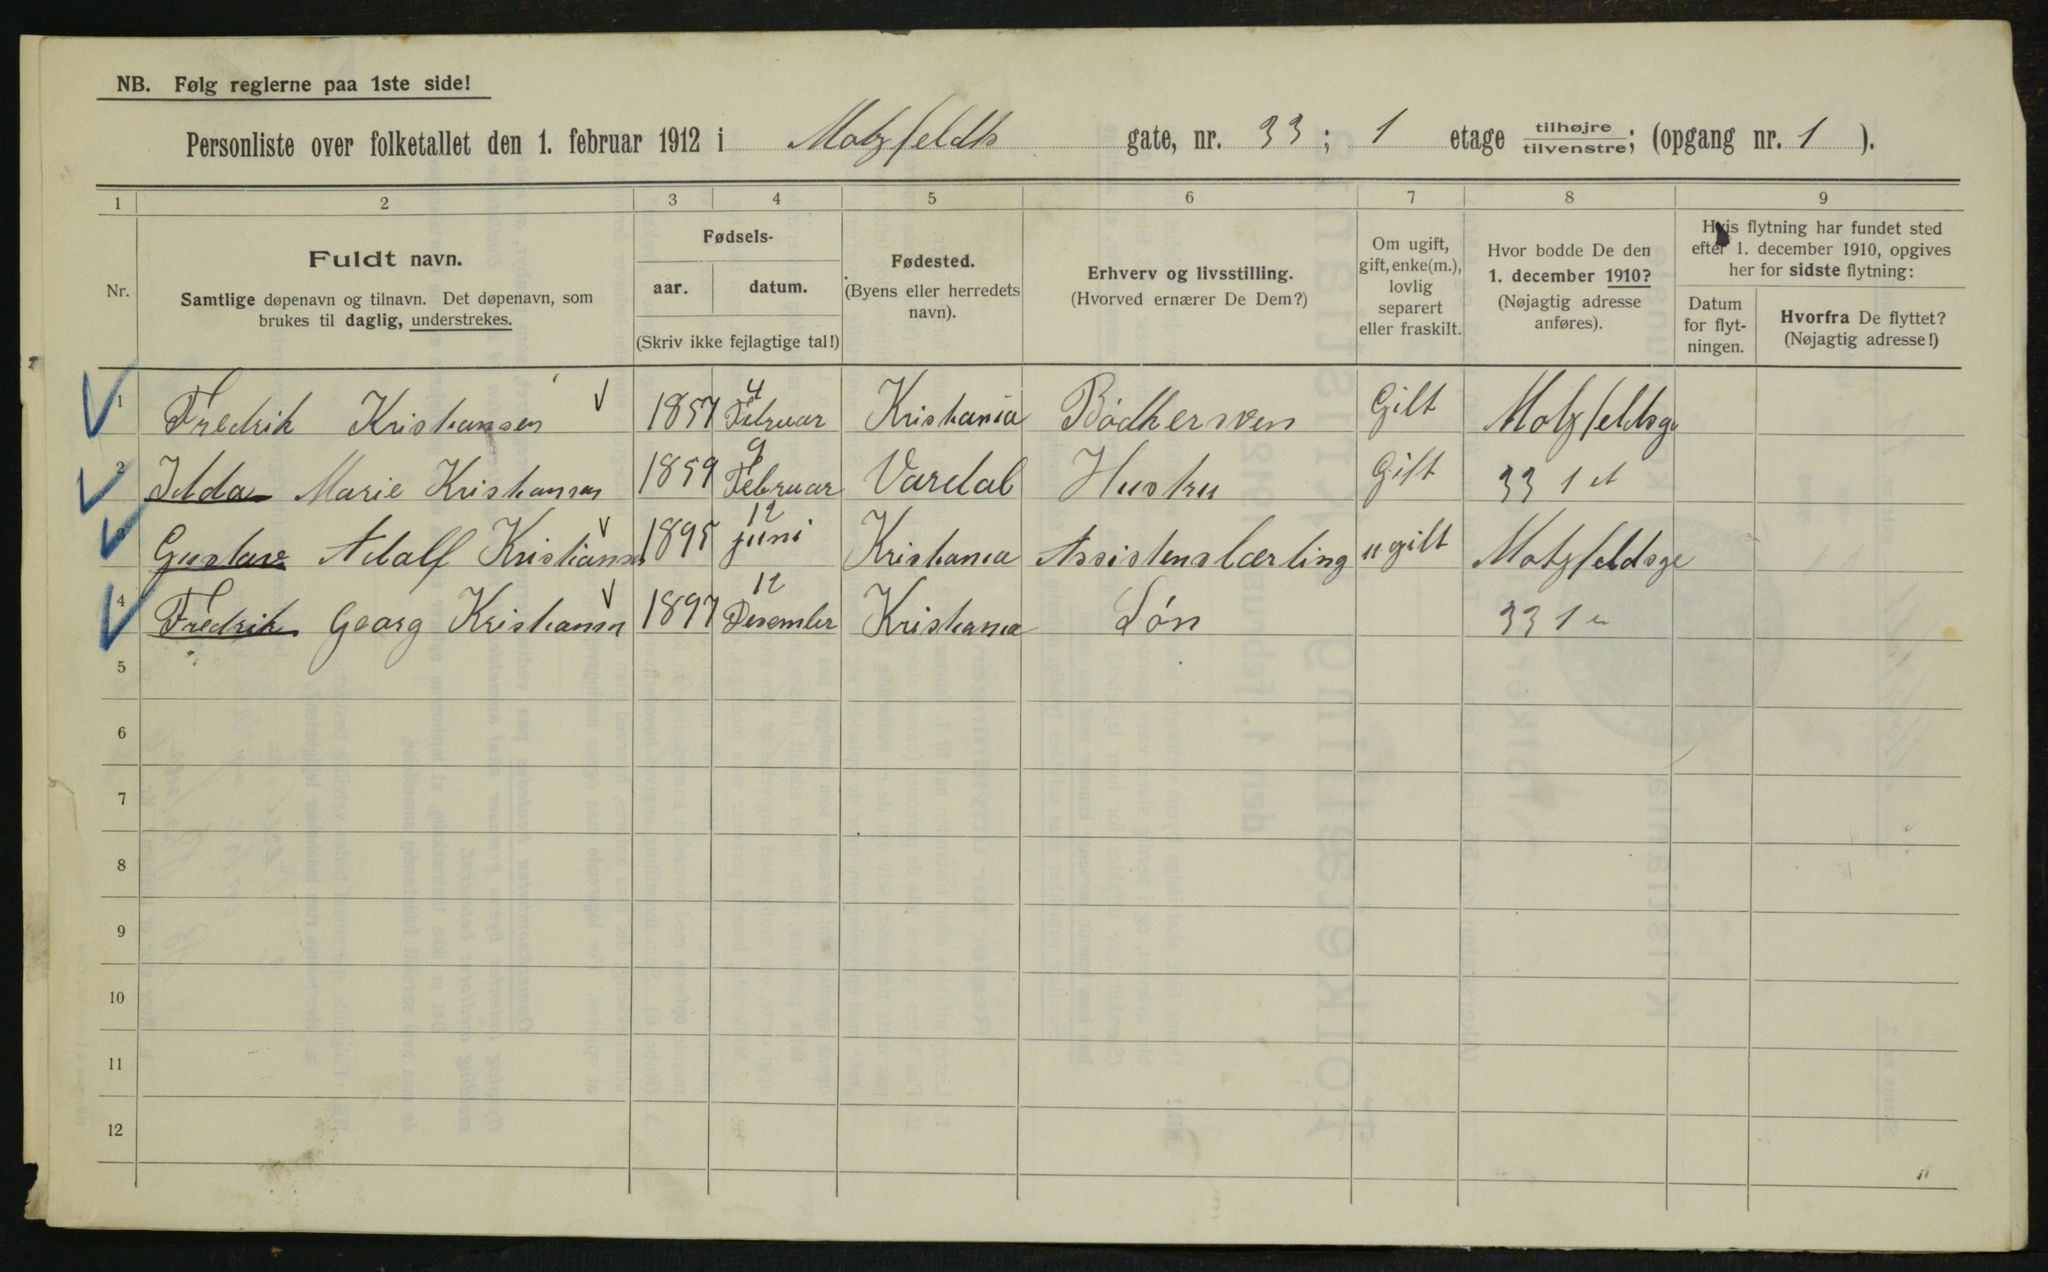 NB. Følg reglerne paa 1ste side!
Personliste over folketallet den 1. februar 1912 i Motzfeldts gate, nr. 33; 1 etage tilhøjre tilvenstre; (opgang nr. 1 ).
1 2 3 4 5 6 7 8 9
Nr.
Fuldt navn.
Samtlige døpenavn og tilnavn. Det døpenavn, som
brukes til daglig, understrekes.
Fødsels-
aar. datum.
(Skriv ikke fejlagtige tal!)
Fødested.
(Byens eller herredets
navn).
Erhverv og livsstilling.
(Hvorved ernærer De Dem?)
Om ugift,
gift, enke(m.),
lovlig
separert
eller fraskilt.
Hvor bodde De den
1. december 1910?
(Nøjagtig adresse
anføres).
Hvis flytning har fundet sted
efter 1. december 1910, opgives
her for sidste flytning:
Datum
for flyt-
ningen.
Hvorfra De flyttet?
(Nøjagtig adresse!)
1 Fredrik Kristiansen 1857 4 Februar Kristiania Bödkersven Gift Motzfeldtsge
2 Ilda Marie Kristiansen 1859 9 Februar Vardal Hustru Gift 33 1 et
3 Gustav Adolf Kristiansen 1895 12 juni Kristiania Assistenslærling ugift Motzfeldsge
4 Fredrik Georg Kristiansen 1897 12 Desember Kristiania Sön 33 1
5
6
7
8
9
10
11
12